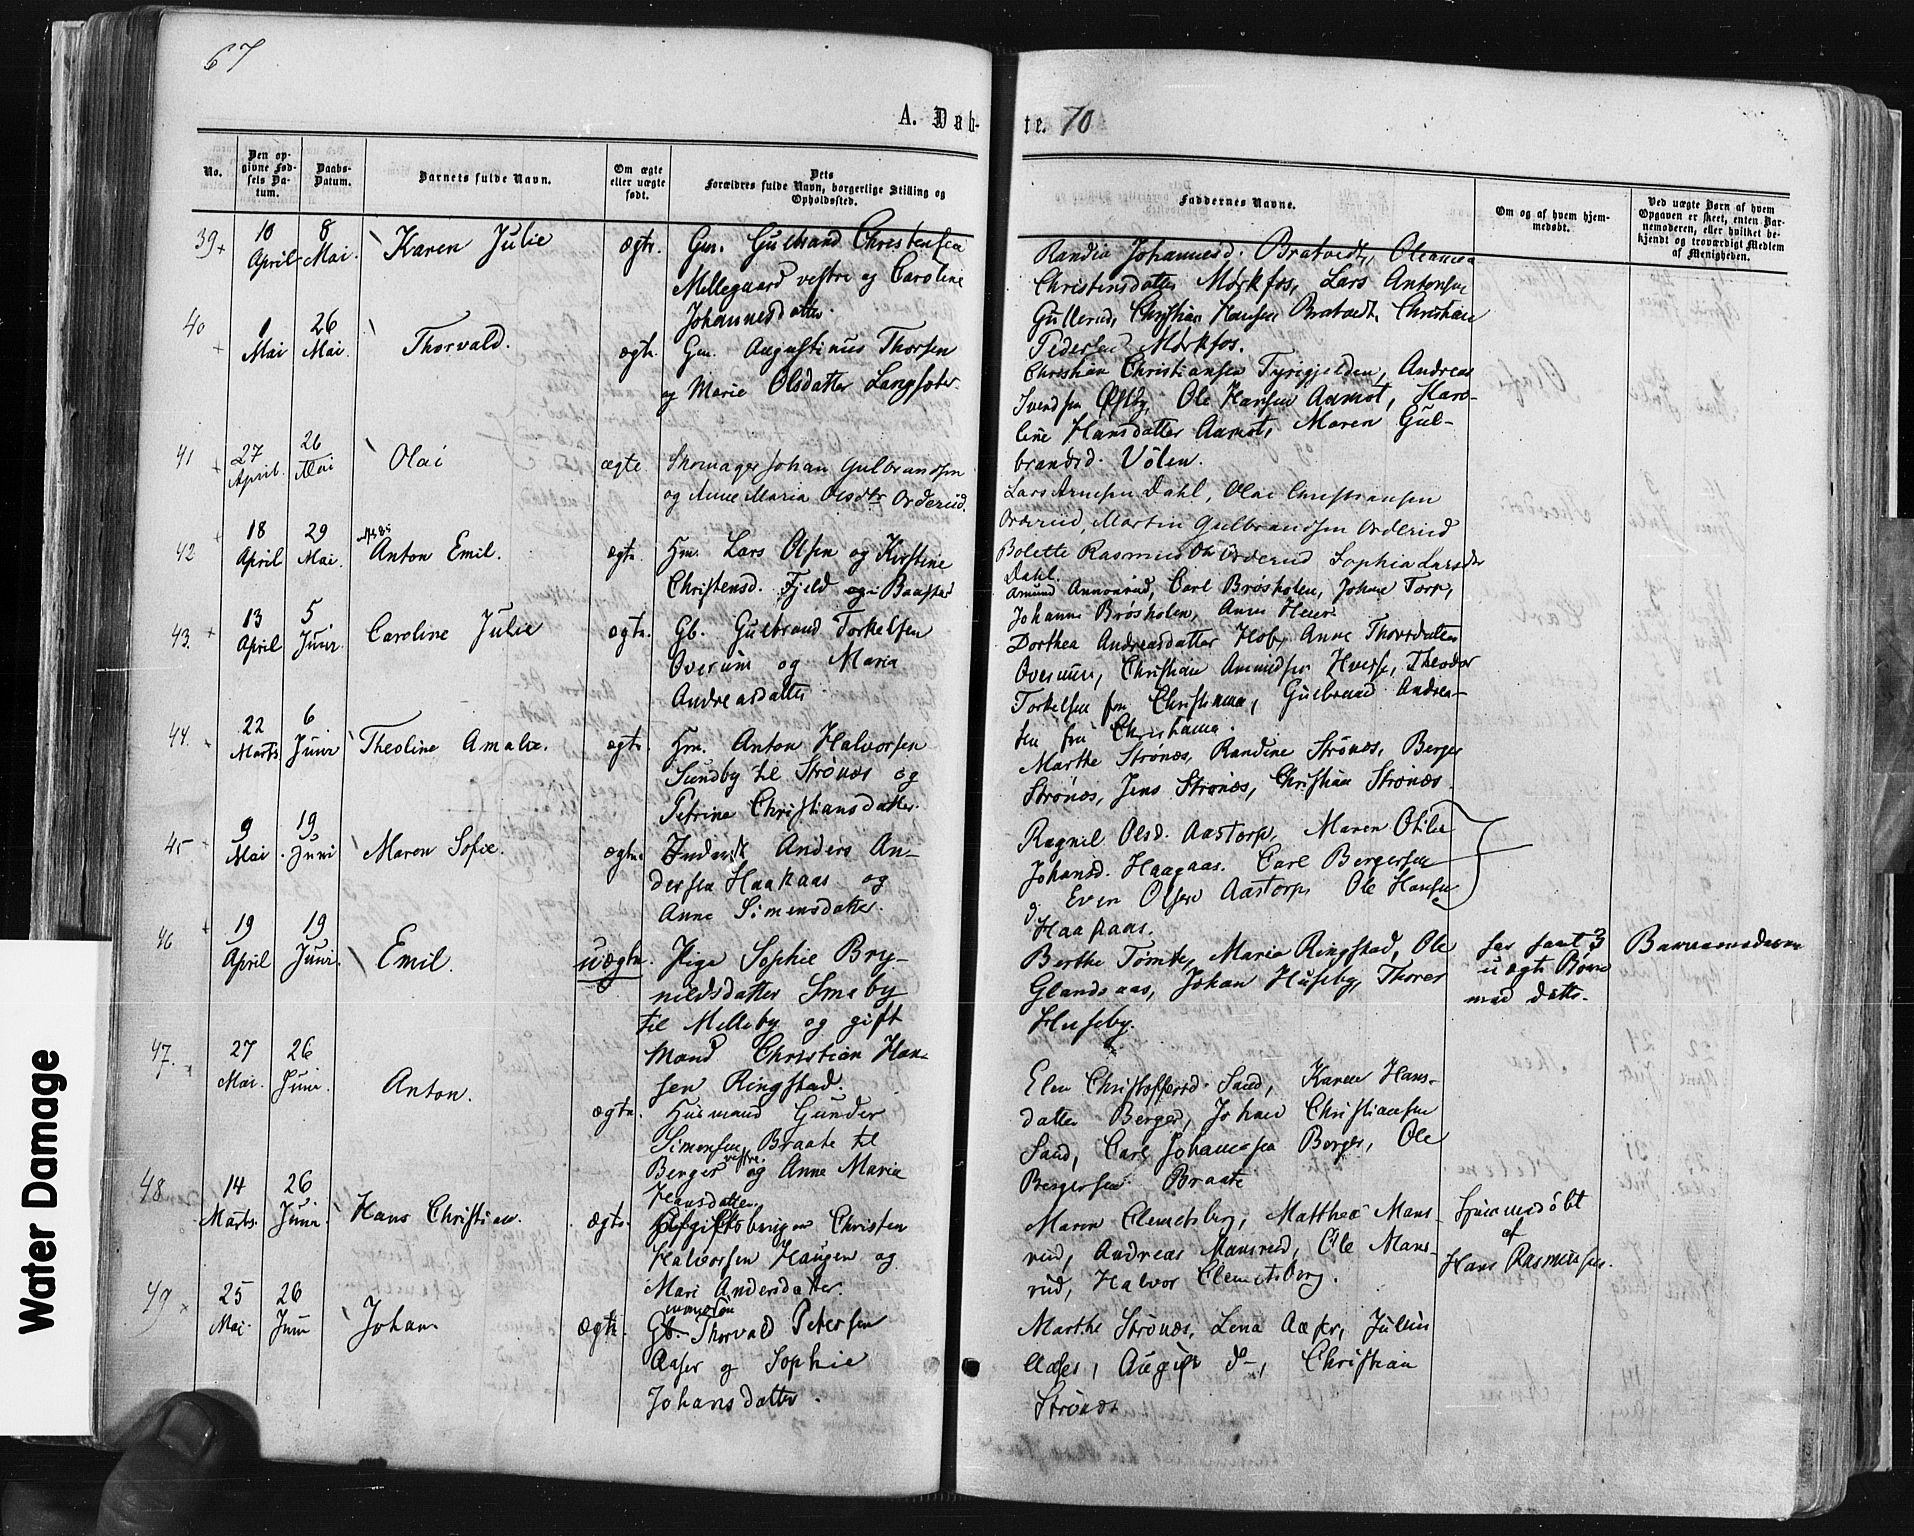 67
A. Døb-
te. 70
No.
Den op-
givne Fød-
sels Da-
tum.
Daabs-
Datum.
Barnets fulde Navn.
Om ægte
eller uægte
født.
Dets
Forældres fulde Navn, borgerlige Stilling og
Opholdssted.
Faddernes Navne.
Om og af hvem hjem-
medøbt.
Ved uægte Børn af hvem
Opgaven er skeet, enten Bar-
nemoderen, eller hvilket be-
kjendt og troværdigt Medlem
af Menigheden.
39 10 April 8 Mai Karen Julie ægte. Gm. Gulbrand Christensen
Mellegaard vestre og Caroline
Johannesdatter.
Johannesd. Bratvedt,
Christensdatter Mørkfos, Lars Antonsen
Gullerud, Christian Hansen Bratvedt, Christian
Pedersen Mørkfos.
40 1 Mai 26 Mai. Thorvald. ægte. Gm. Augustinus Thorsen
og Marie Olsdatter Langsæter.
Christian Christiansen Tyrigjelden, Andreas
Svendsen Østby, Ole Hansen Aamot, Karo-
line Hansdatter Aamot, Maren Gul-
brandsd. Vølen.
41 27 April. 26 Mai Olai ægte. Skomager Johan Gulbrandsen
og Anne Maria Olsdtr Orderud.
Lars Arnesen Dahl, Olai Christiansen
Orderud, Martin Gulbrandsen Orderud
Bolette Rasmusdtr Orderud Sophia Larsdtr
Dahl.
42 18 April 29 Mai. Anton Emil. ægte. Hm. Lars Olsen og Kirstine
Christensd. Fjeld
Amund Annonrud, Carl Brøsholen, Johan Torp,
Johanne Brøsholen, Anne Heier.
43. 13 April 5 Juni. Caroline Julie ægte. Gb. Gulbrand Torkelsen
Overum og Maria
Andreasdatter
Dorthea Andreasdatter Hob, Anne Thorsdatter
Overum, Christian Amundsen Theodor
Torkelsen fra Christiania, Gulbrand Andrea-
sen fra Christiania.
44. 22 Marts 6 Juni Theoline Amalie. ægte. Hm. Anton Halvorsen
Sundby til Strønæs og
Petrine Christiansdatter.
Marthe Strønæs, Randine Strønæs, Berger
Strønæs, Jens Strønæs, Christian Strønæs.
45 9 Mai 19 Juni Maren Sofie. ægte. Inderst Anders An-
dersen Haakaas og
Anne Simensdatter.
Ragnil Olsd. Aastorp, Maren Otilie
Johansd. Haagaas. Carl Bergersen
Even Olsen Aastorp Ole Hansen
Haakaas.
46 19 April 19 Juni. Emil. uægte. Pige Sophie Bry-
nildsdatter Smeby
til Melleby og gift
Mand Christian Han-
sen Ringstad.
Berthe Tomte, Maria Ringstad, Ole
Glandsaas, Johan Huseby, Thorer
Huseby.
3
uægte Børn
med dette.
Barnemoderen
47. 27 Mai. 26 Juni Anton. ægte. Husmand Gunder
Simensen Braate til
Berger vestre og Anne Maria
Hansdatter
Elen Christoffersd. Sand, Karen Hans-
datter Berger, Johan Christiansen
Sand, Carl Johannesen Berger, Ole
Bergersen Braate
48 14 Marts. 26 Juni Hans Christian. ægte. Christen
Halvorsen Haugen og
Mari Andersdatter.
Maren Clemetsberg, Matthea Mans-
rud, Andreas Mansrud, Ole Mans-
rud, Halvor Clemetsberg.
Hjemmedøbt
af
Hans Rasmussen.
49 25 Mai. 26 Juni Johan ægte. Gb- Thorvald Petersen
Aaser og Sophie
Johansdatter.
Marthe Strønæs, Lena Aaser, Julius
Aaser, August d-, Christian
Strønæs
Water Damage